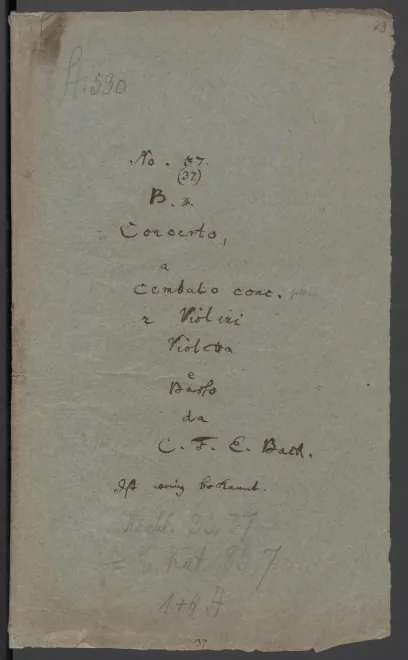 23
A. 530
No. 37.
(37)
B. 8.
Concerto,
a
Cembalo conc.
2 Violini
Violetta
e
Basso
da
C. F. E. Bach.
Ist wenig bekannt.
Nachl. 33, 37
= Kat. 83, 7
1+4
37